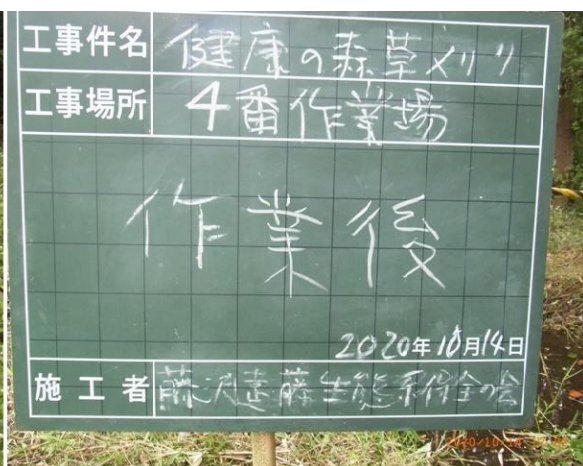 工事件名 健康の森草刈り
工事場所 4番作業場
作業後
2020年10月14日
施工者 藤沢遠藤生態系保全の会
2020/10/14